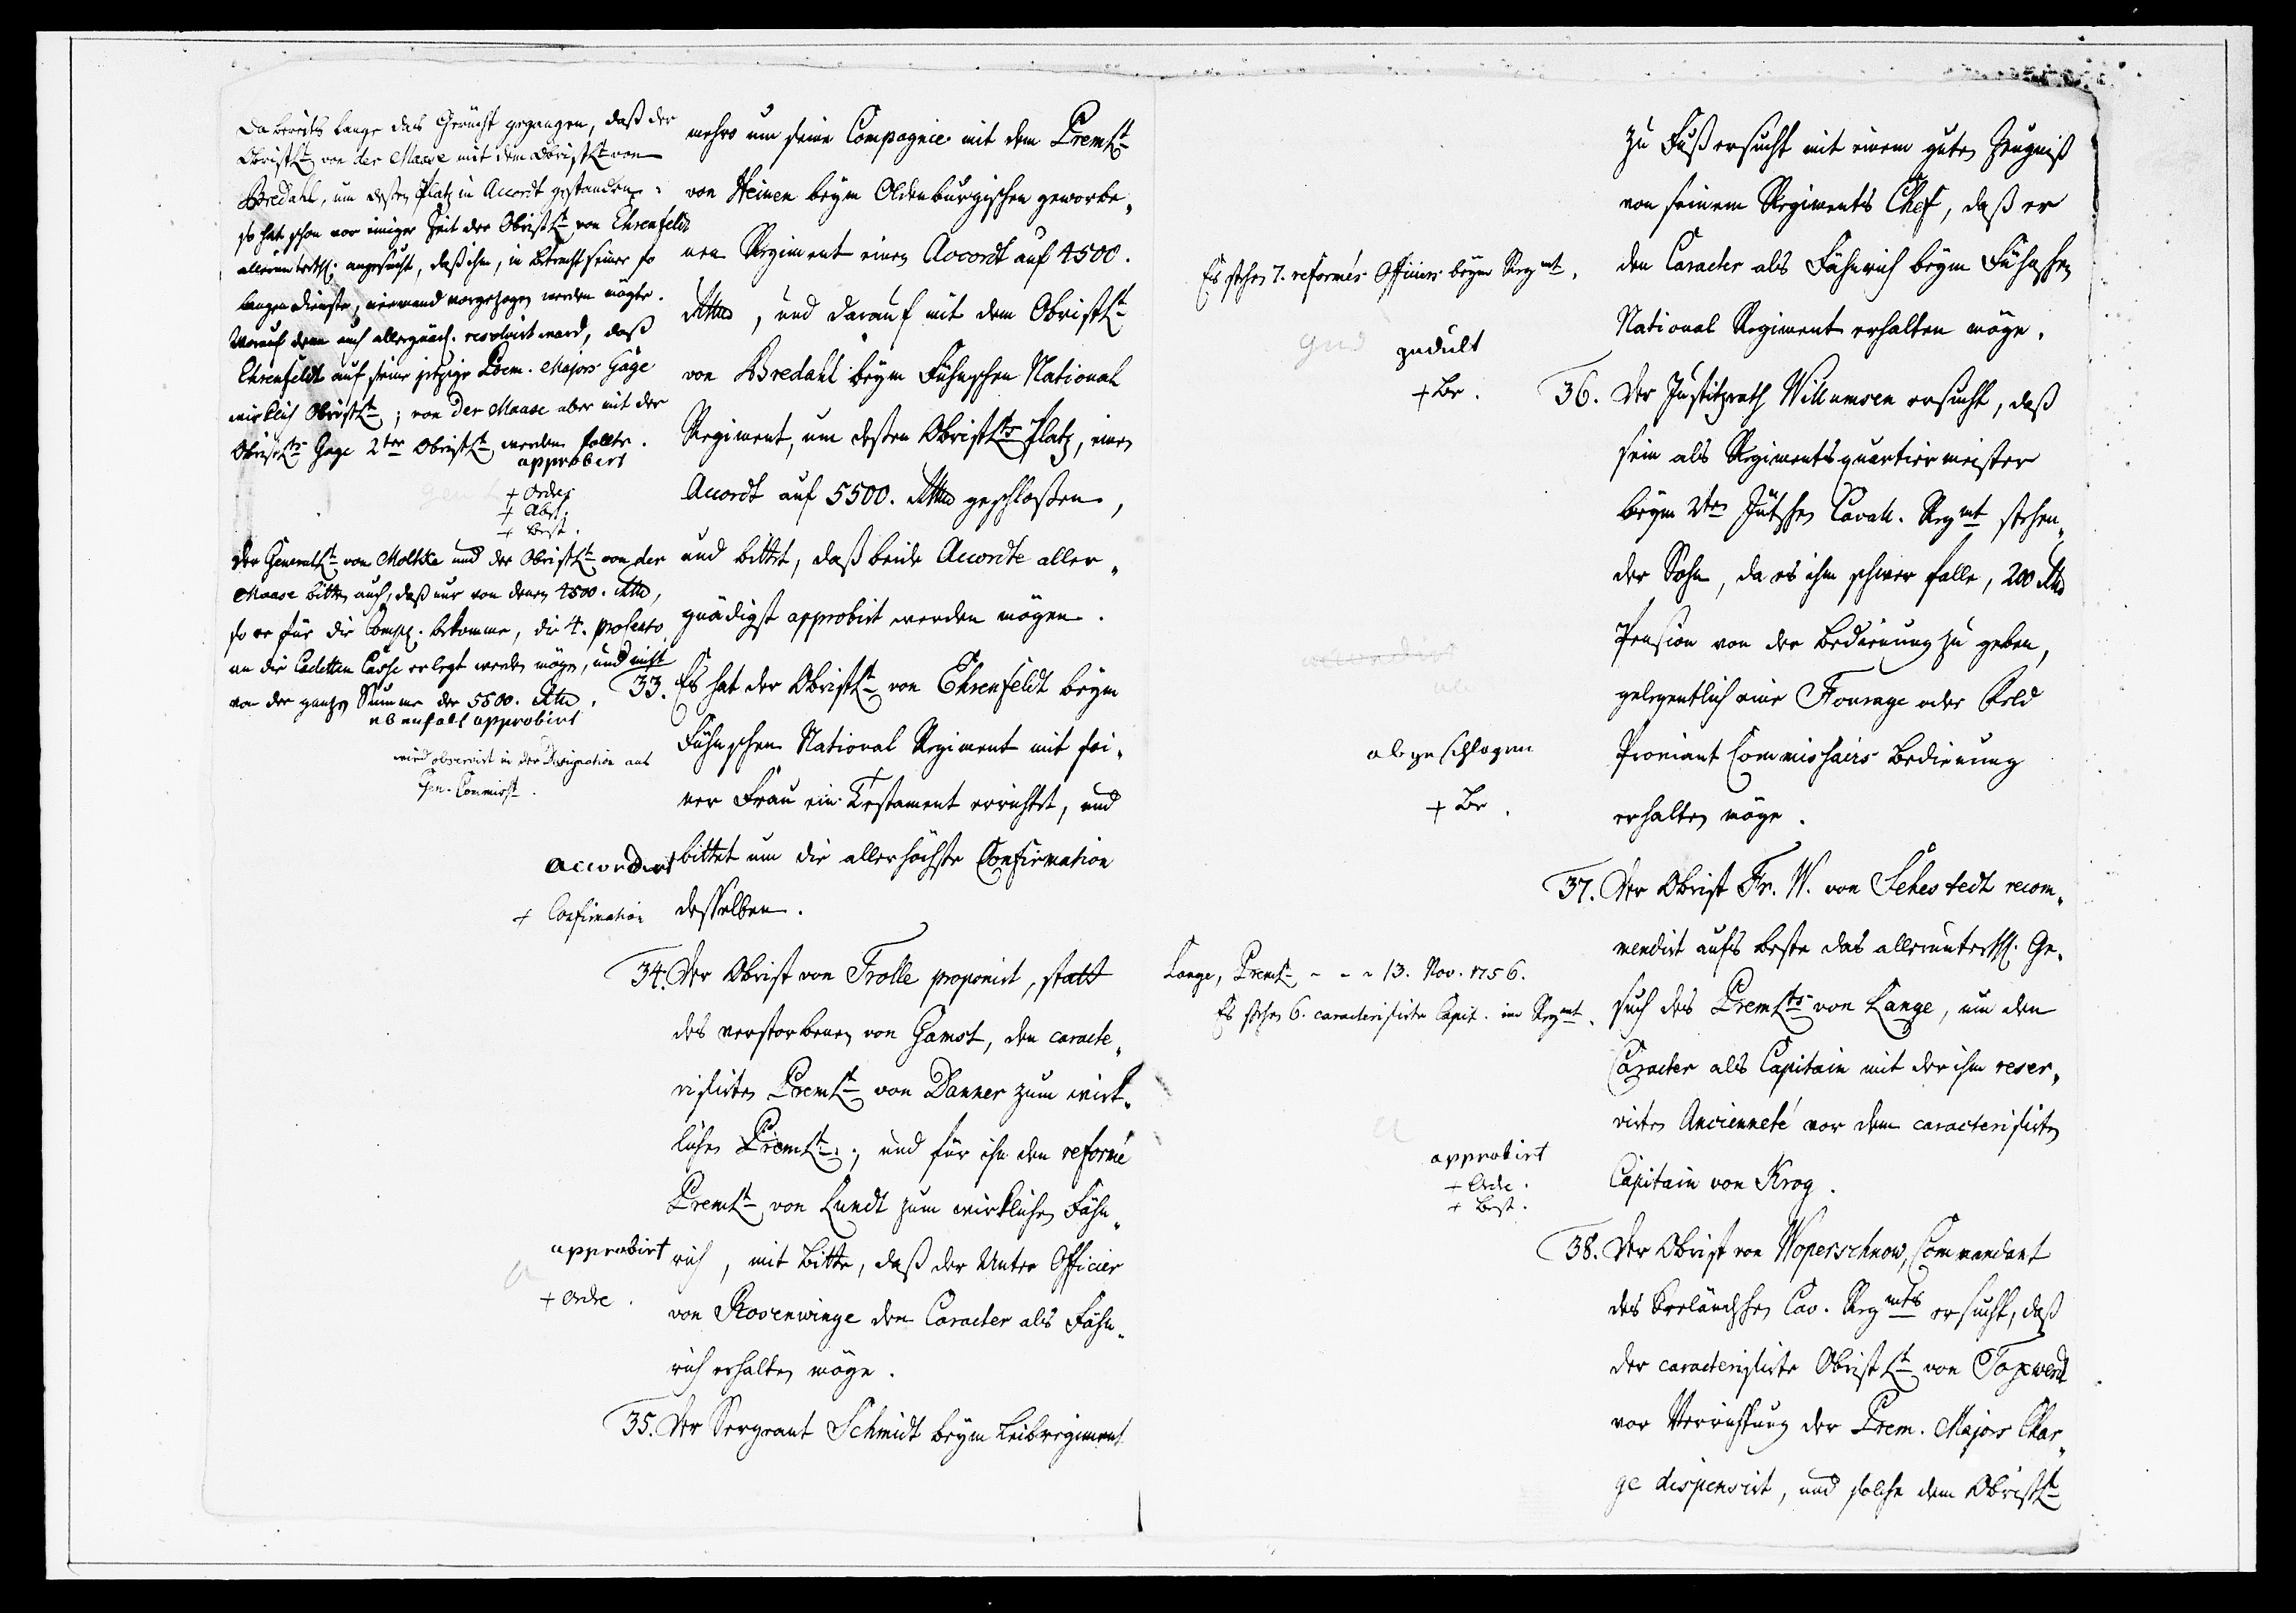 Da bereits lange das Gerücht gegangen, daß der
ObristLt von der Maase mit dem ObristLt von
Bredahl, um deßen Platz in Accordt gestanden:
so hat schon vor einiger Zeit der ObristLt von Ehrenfeldt
allerunterth: angesucht, daß ihm, in Betracht seiner so
langen Dienste, niemand vorgezogen werden mögte.
Worauf denn auch allergnäd. resolvirt ward, daß
Ehrenfeldt auf seine jetzige Prem. Majors Gage
wirklich ObristLt; von der Maase aber mit der
ObristLts Gage 2ter ObristLt werden sollte.
approbirt
+ Ordre
+ Absch.
+ Best.
Der GeneralLt von Moltke und der ObristLt von der
Maase bitten auch, daß nur von denen 4500. Rthlr,
so er für die Comp. bekomme, die 4. proCento
an die Cadetten Casse erlegt werden mögen, und nicht
von der gantzen Summe der 5500. Rthlr.
ebenfalls approbirt
wird observirt in der Designation ans
Gen. Commisst.
mehro um seine Compagnie mit dem PremLt
von Heinen beym Oldenburgischen geworbe-
nen Regiment einen Accordt auf 4500.
Rthlr, und darauf mit dem ObristLt
von Bredahl beym Fühnschen National
Regiment, um deßen ObristLts Platz, einen
Accordt auf 5500. Rthlr geschloßen,
und bittet, daß beide Accordte aller-
gnädigst approbirt werden mögen.
33. Es hat der ObristLt von Ehrenfeldt beym
Fühnschen National Regiment mit sei-
ner Frau ein Testament errichtet, und
bittet um die allerhöchste Confirmation
desselben.
accordirt
+ Confirmation
34. Der Obrist von Trolle proponirt, statt
des verstorbenen von Gamst, den caracte-
risirten PremLt von Danner zum wirk-
lichen PremLt; und für ihn den reformé
PremLt von Lundt zum wirklichen Fähn-
rich, mit Bitte, daß der Unter Officier
von Rosenvinge den Caracter als Fähn-
rich erhalten möge.
approbirt
+ Ordre.
35. Der Sergeant Schmidt beym Leibregiment
zu Fuß ersucht mit einem guten Zeugniß
von seinem Regiments Chef, daß er
den Caracter als Fähnrich beym Fühnschen
National Regiment erhalten möge.
Es stehen 7. reformés Officiers beym Regmt.
gedult
+ Br.
36. Der Justitzrath Willumsen ersucht, daß
sein als Regimentsquartiermeister
beym 2ten Jütschen Cavall. Regmt stehen-
der Sohn, da es ihm schwer falle, 200 Rthlr
Pension von der Bedienung zu geben,
gelegentlich eine Fourage oder Feld
Proviant Commissairs Bedienung
erhalten möge.
abgeschlagen
+ Br.
37. Der Obrist Fr. W. von Sehestedt recom-
mendirt aufs beste das allerunterth. Ge-
such des PremLts von Lange, um den
Caracter als Capitain mit der ihm reser-
virten Ancienneté vor dem caracterisirten
Capitain von Krog.
Lange, PremLt - - - 13. Nov. 1756.
Es stehen 6. caracterisirte Capit. im Regmt.
approbirt
+ Ordre.
+ Best.
38. Der Obrist von Woperschnow, Commendant
des Seeländschen Cav. Regmts ersucht, daß
der caracterisirte ObristLt von Toxwerd
vor Verrichtung der Prem. Majors Char-
ge dispensirt, und solche dem ObristLt